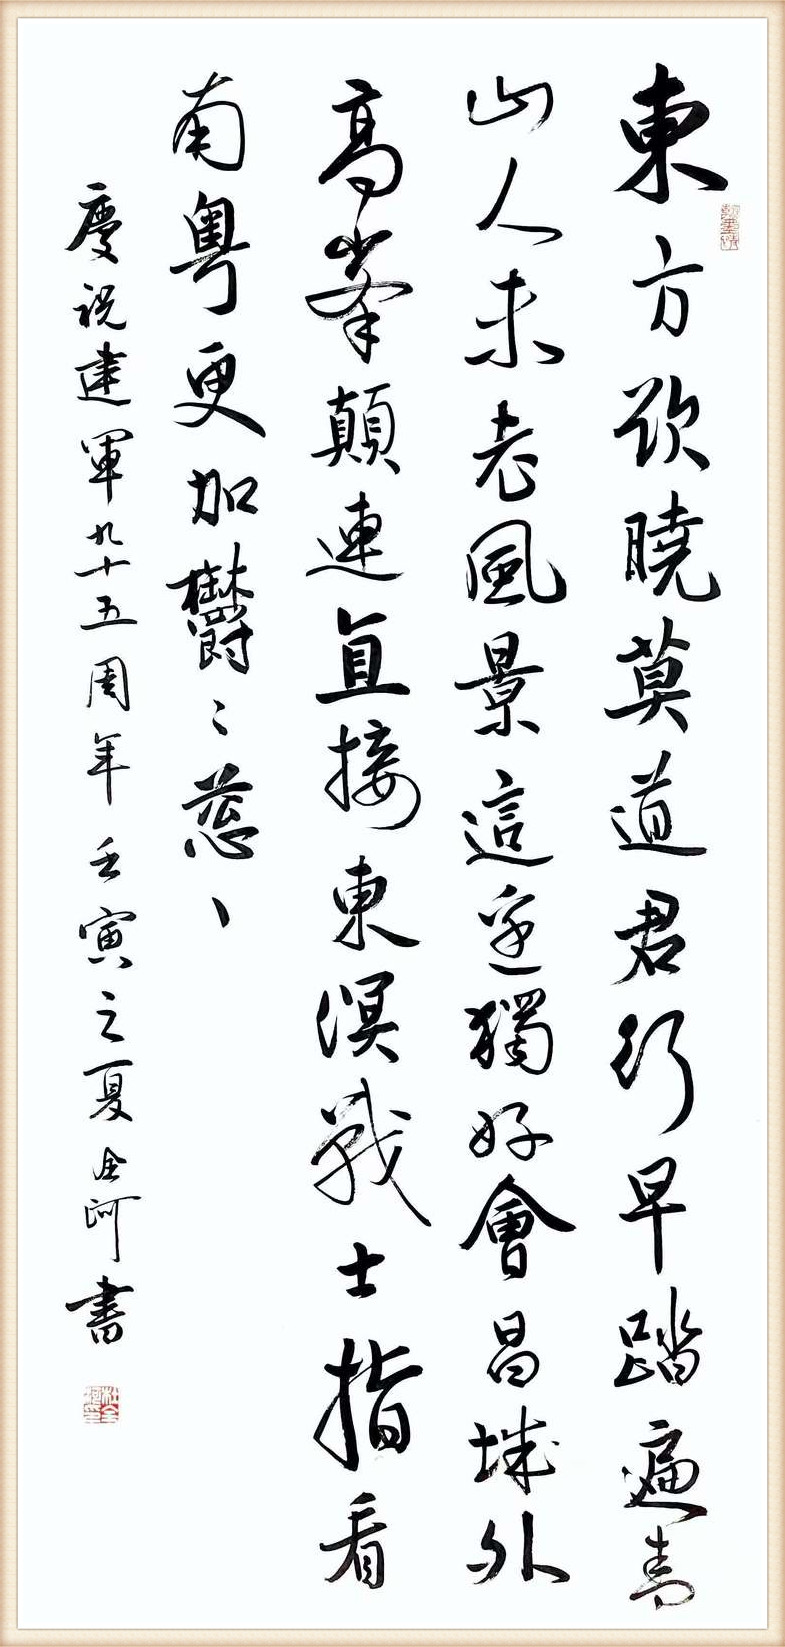 東方欲曉莫道君行早踏遍青
山人未老風景這邊獨好會昌城外
高峯顛連直接東溟戰士指看
南粵更加鬱〻葱〻
慶祝建軍九十五周年 壬寅之夏 全河書
杜全河印